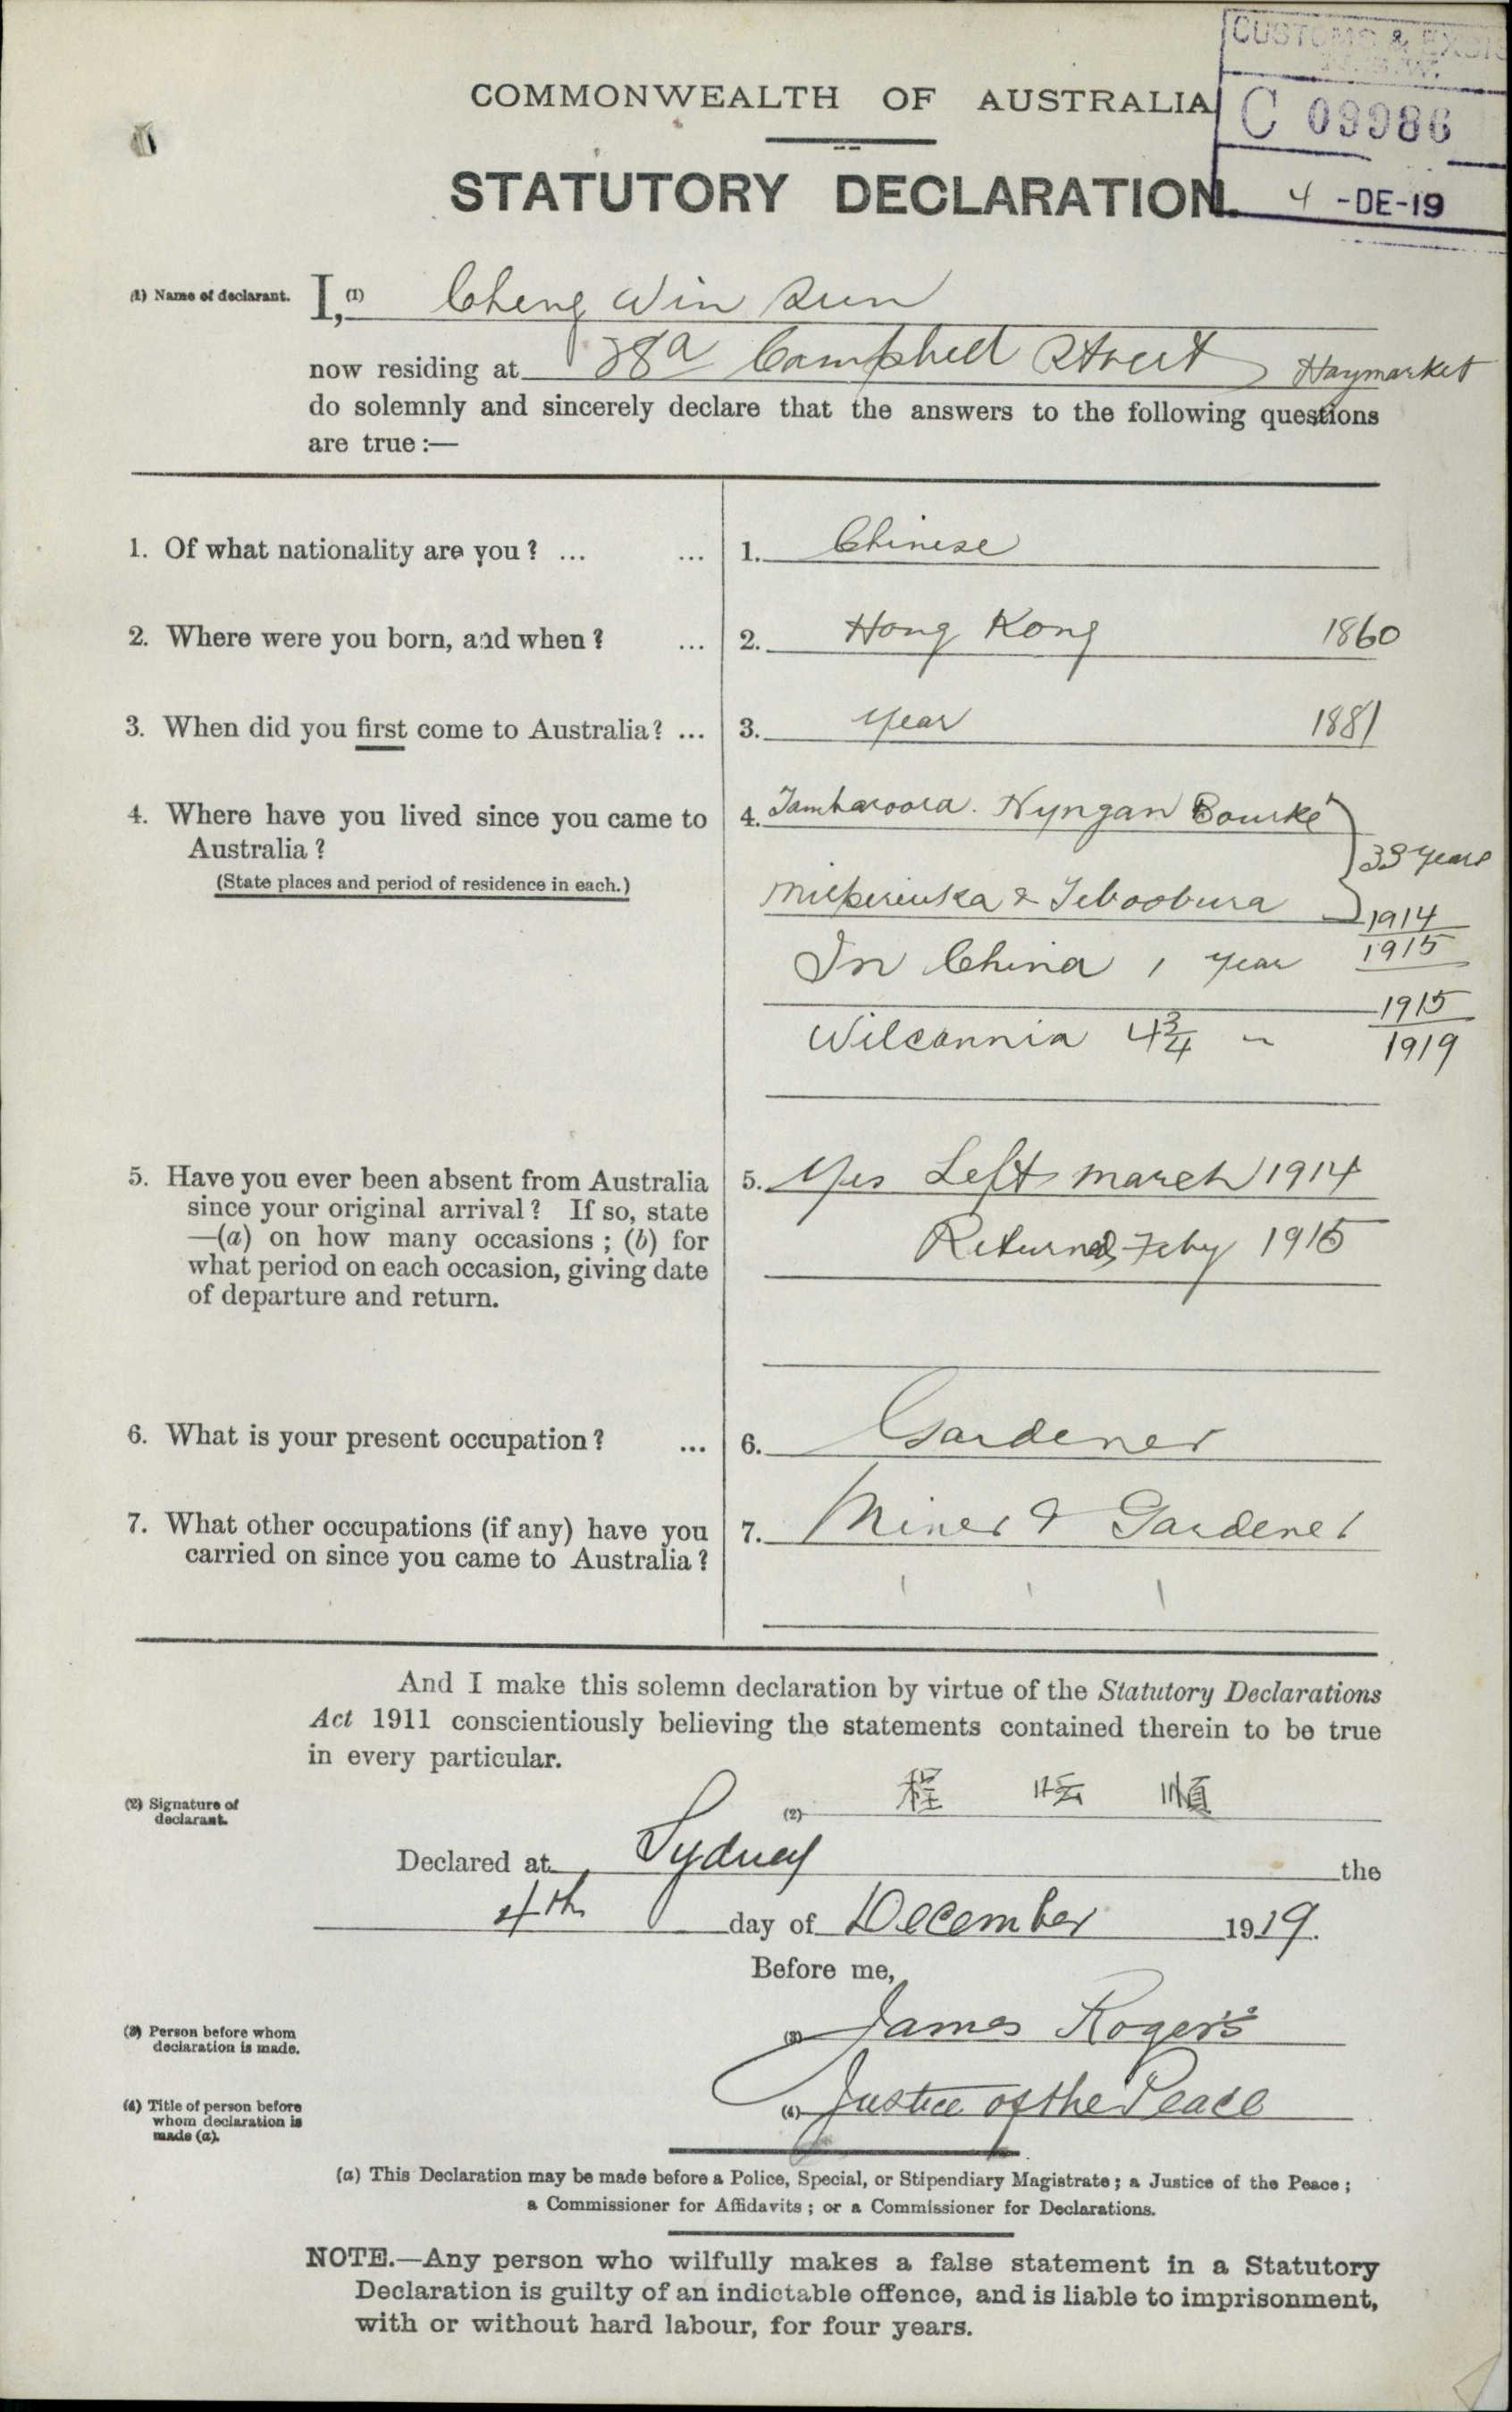 CUSTOMS & EXCIS
C 09986
4 -DE-19
COMMONWEALTH OF AUSTRALIA
STATUTORY DECLARATION.
(1) Name of declarant. I, (1) Cheng Win Sun
now residing at 38a Campbell Street Haymarket
do solemnly and sincerely declare that the answers to the following questions
are true:—
1. Of what nationality are you? ... ... 1. Chinese
2. Where were you born, and when? ... 2. Hong Kong 1860
3. When did you first come to Australia? ... 3. Year 1881
4. Where have you lived since you came to 4. Tambaroora. Nyngan Bourke
Australia? 33 years
(State places and period of residence in each.) Milperinka & Tibooburra 1914
In China 1 year 1915
1915
Wilcannia 4 3/4 " 1919
5. Have you ever been absent from Australia 5. Yes Left March 1914
since your original arrival? If so, state
—(a) on how many occasions; (b) for Returned Feby 1915
what period on each occasion, giving date
of departure and return.
6. What is your present occupation? ... 6. Gardener
7. What other occupations (if any) have you 7. Miner & Gardener
carried on since you came to Australia?
And I make this solemn declaration by virtue of the Statutory Declarations
Act 1911 conscientiously believing the statements contained therein to be true
in every particular.
(2) Signature of declarant. (2) 程 順
Declared at Sydney the
4th day of December 1919.
Before me,
(3) Person before whom declaration is made. (3) James Rogers
(4) Title of person before whom declaration is made (a). (4) Justice of the Peace
(a) This Declaration may be made before a Police, Special, or Stipendiary Magistrate; a Justice of the Peace;
a Commissioner for Affidavits; or a Commissioner for Declarations.
NOTE.—Any person who wilfully makes a false statement in a Statutory
Declaration is guilty of an indictable offence, and is liable to imprisonment,
with or without hard labour, for four years.